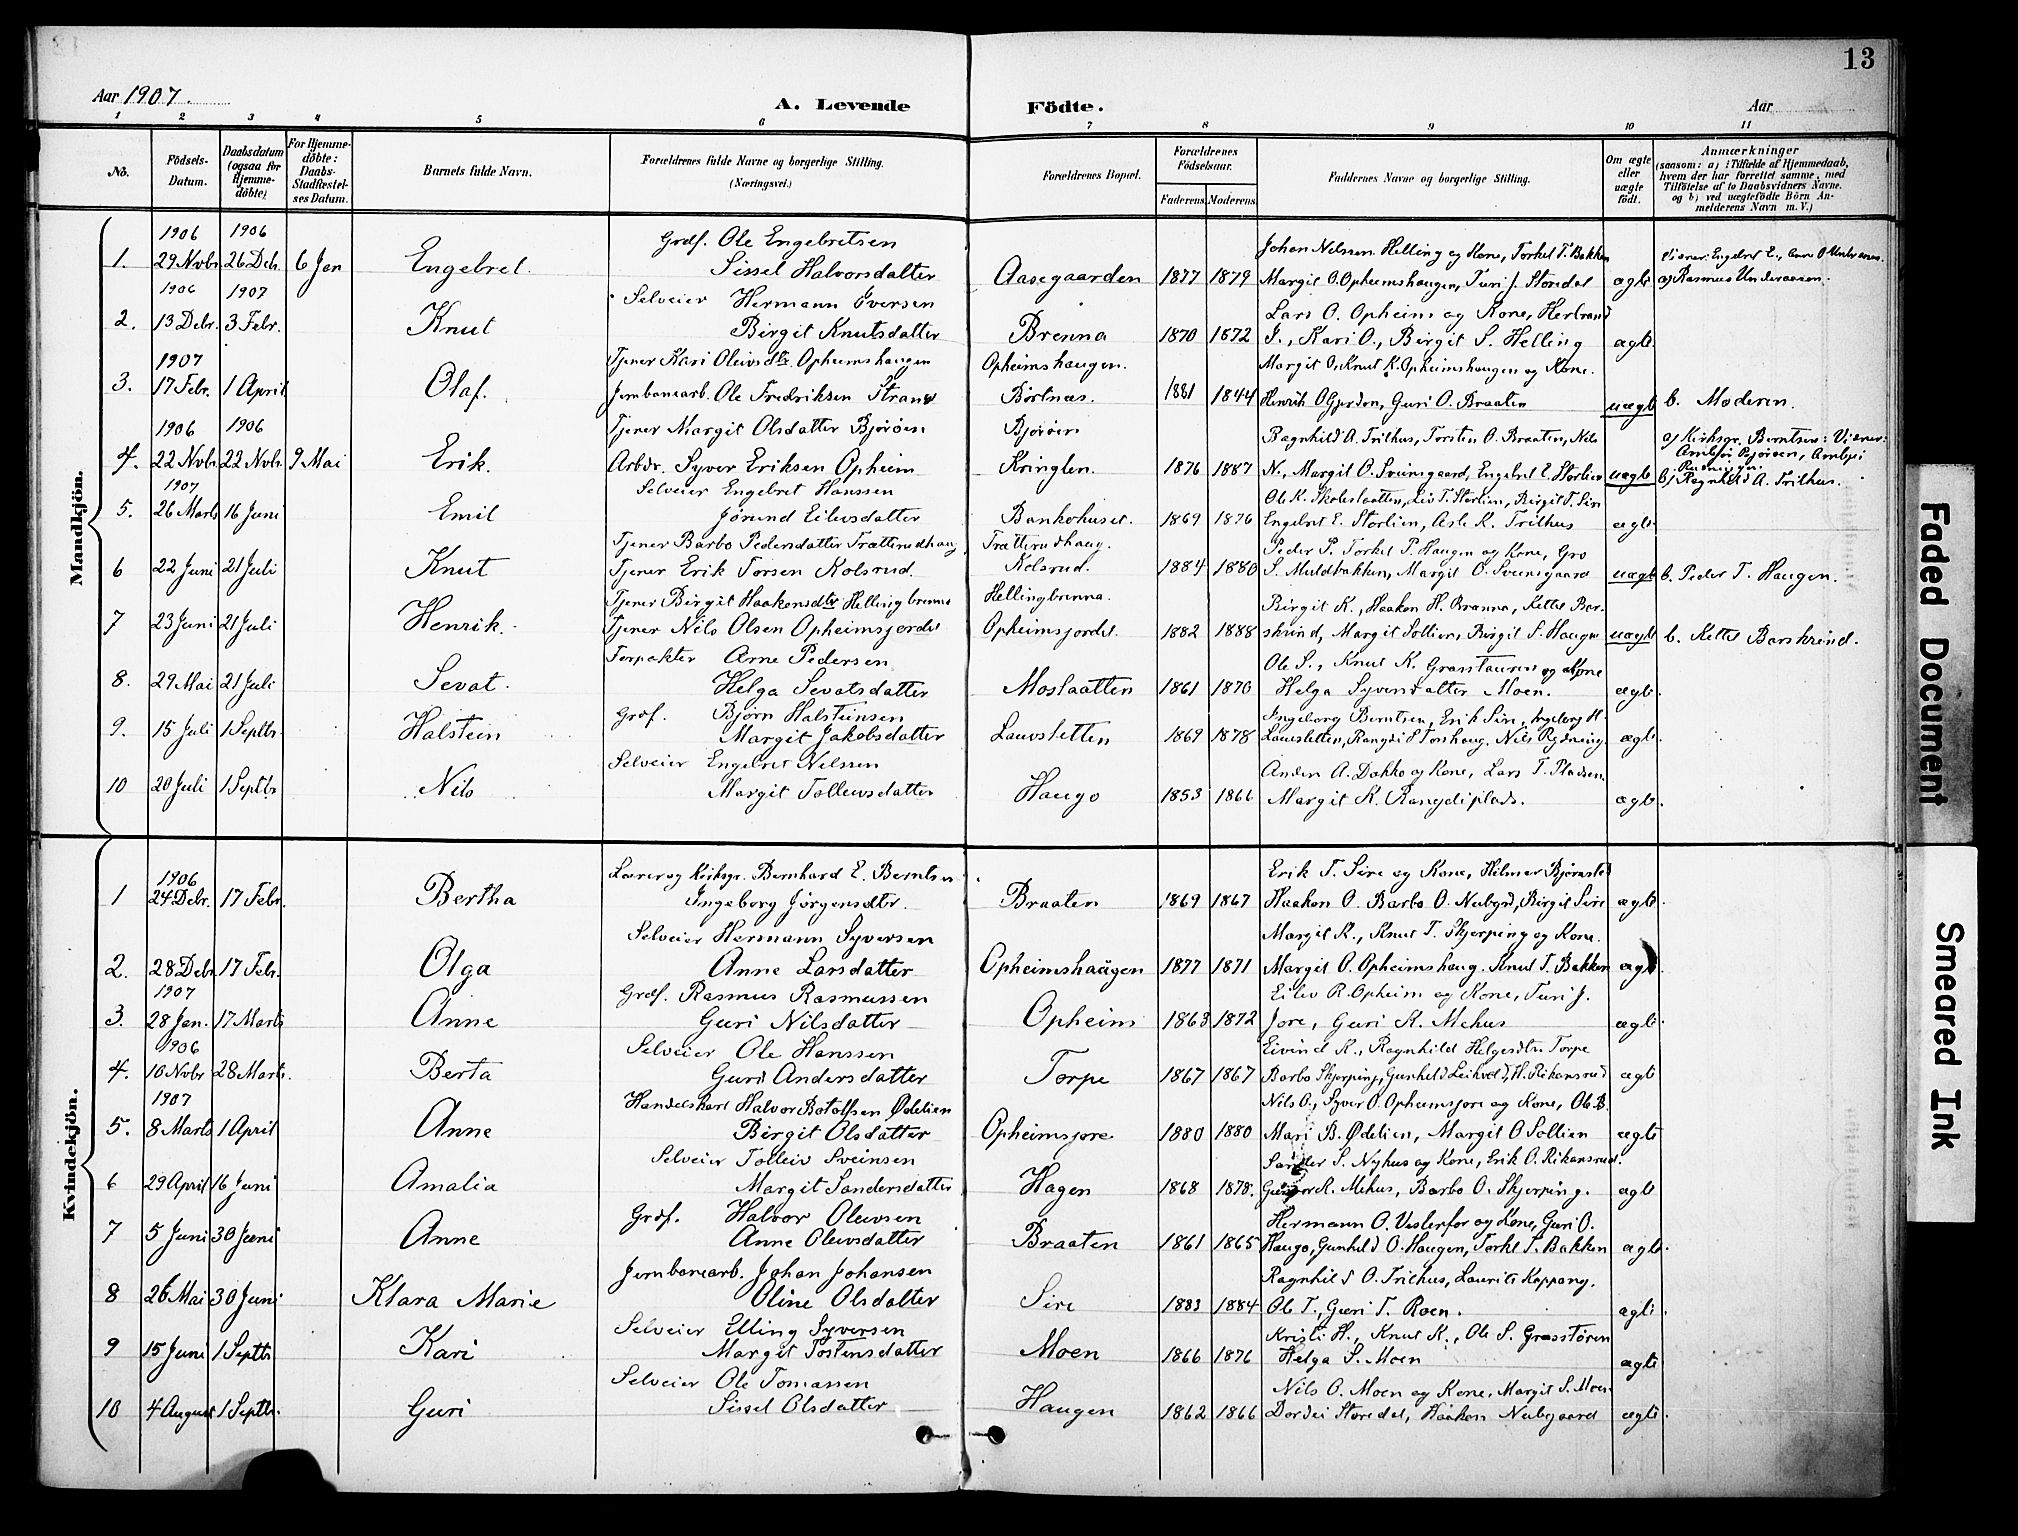 13
Aar 1907.
A. Levende Födte.
Aar
1 2 3 4 5 6 7 8 9 10 11
No.
Födsels-Datum.
Daabsdatum (ogsaa for Hjemme-döbte)
For Hjemme-döbte: Daabs-Stadfæstel-ses Datum.
Barnets fulde Navn.
Forældrenes fulde Navne og borgerlige Stilling. (Næringsvei.)
Forældrenes Bopæl.
Forældrenes Födselsaar.
Faderens Moderens
Faddernes Navne og borgerlige Stilling.
Om ægte eller uægte födt.
Anmærkninger
(saasom: a) i Tilfælde af Hjemmedaab, hvem der har forrettet samme, med Tilföielse af to Daabsvidners Navne, og b) ved uægtefödte Börn An-melderens Navn m. V.)
Mandkjön.
1906 1906 Grdf. Ole Engebretsen Johan Nilssen Helling og Kone, Torkel T. Bakken
1. 29 Novbr 26 Deb. 6 Jan Engebret. Sissel Halvorsdatter Aasegaarden 1877 1879 Margit O. Opheimshaugen, Turi J. Storedal ægte a) Rasmus Underaasen.
1906 1907 Selveier Hermann Iversen Lars O. Opheim og Kone, Herbrand
2. 13 Debr. 3 Febr. Knut Birgit Knutsdatter Brenna 1870 1872 I., Kari O., Birgit S. Helling ægte.
1907 Tjener Kari Oleivsdtr. Opheimshaugen Opheimshaugen. Margit O. Knut K. Opheimshaugen og Kone.
3. 17 Febr. 1 April Olaf. Jernbanearb. Ole Fredriksen Strand Børtnæs. 1881 1844 Henrik O Gjerden, Guri O. Braaten uægte b. Moderen.
1906 1906 Tjener Margit Olsdatter Bjørøen Bjørøen Ragnhild A. Trilhus, Torsten O. Braaten, Nils a) Kirksgr. Berntsen: Vidner:
4. 22 Novbr. 22 Novbr. 9 Mai Erik. Arbdr. Syver Eriksen Opheim Kringlen. 1876 1887 N., Margit O. Svensgaard, Engebret E. Storlien uægte b) Ragnhild A. Trilhus.
1907 Selveier Engebret Hanssen Ole K. Skoleslaatten, Liv T. Storlien, Birgit T. Sire
5. 26 Marts 16 Juni Emil Jørund Eilevsdatter Bankohuset. 1869 1876 Engebret E. Storlien, Asle K. Trilhus ægte.
Tjener Barbo Pedersdatter Trætterudhaug Trætterudhaug. Peder P. Torkel P. Haugen og Kone, Gro
6 22 Juni 21 Juli Knut Tjener Erik Torsen Kolsrud. Kolsrud. 1884 1880 S. Muldbakken, Margit O. Svensgaard uægte b. Peder T. Haugen.
Tjener Birgit Haakensdtr Hellingbrenna Hellingbrenna. Birgit K., Haaken H. Brenna, Kittel Bar-
7 23 Juni 21 Juli Henrik. Tjener Nils Olsen Opheimsjordet Opheimsjordet 1882 1888 skrind, Margit Sollien, Birgit S. Haugen uægte b. Kittel Barskrind.
Forpakter Arne Pedersen Ole S., Knut K. Grøsstøren og Kone
8. 29 Mai 21 Juli Sevat. Helga Sevatsdatter Moslaatten 1861 1870 Helga Syversdatter Moen. ægte.
Grdf. Bjørn Halsteinsen Ingeborg Berntsen, Erik Sire, Ingeborg H.
9. 15 Juli 1 Septbr. Halstein Margit Jakobsdatter Lauvsletten 1869 1878 Lauvsletten, Rangdi S Torshaug. Nils Rydning. ægte.
Selveier Engebret Nilssen Anders A. Dokko og Kone, Lars T. Pladsen
10 20 Juli 1 Septbr. Nils Margit Tollevsdatter Haugo 1853 1866 Margit K. Rangdiplads. ægte.
Kvindekjön.
1906 Lærer og Kirksgr. Bernhard E. Berntsen Erik T. Sire og Kone, Hilmar Bjørnstad
1 24 Debr. 17 Febr. Bertha Ingeborg Jørgensdtr. Braaten 1869 1867 Haakon O. Barbo O. Nubgrd, Birgit Sire ægte.
Selveier Hermann Syversen Margit K., Knut T. Skjerping og Kone.
2. 28 Debr 17 Febr. Olga Anne Larsdatter Opheimshaugen 1877 1871 Margit O. Opheimshaug. Knut T. Bakken ægte.
1907 Grdf. Rasmus Rasmussen Eilev R. Opheim og Kone, Turi J.
3. 28 Jan. 17 Marts Anne Guri Nilsdatter Opheim 1863 1872 Jore, Guri K. Mehus ægte.
1906 Selveier Ole Hanssen Eivind K., Ragnhild Helgesdtr. Torpe
4. 10 Novbr 28 Marts. Berta Guri Andersdatter Torpe 1867 1867 Barbo Skjerping, Gunhild Leikvold, H. Rikansrud ægte
1907 Handelskarl Halvor Botolfsen Ødelien Nils O., Syver O. Opheimsjore og Kone, Ole B.
5. 8 Marts 1 April Anne Birgit Olsdatter Opheimsjore 1880 1880 Mari B. Ødelien, Margit O Sollien ægte
Selveier Tolleiv Sveinsen Sander S. Nyhus og Kone, Erik O. Rikansrud.
6 29 April 16 Juni Amalia Margit Sandersdatter Hagen 1868 1878. K. Mehus, Barbo O. Skjerping. ægte
Grdf. Halvor Olevsen Hermann O. Vesterfor og Kone, Guri O.
7 5 Juni 30 Juni Anne Anne Olevsdatter Braaten 1861 1865 Haugo, Gunhild O. Haugen, Torkel T. Bakken ægte.
Jernbanearb. Johan Johansen Ragnhild O. Trilhus, Laurits Koppang.
8 26 Mai 30 Juni Klara Marie Oline Olsdatter Sire 1883 1884 Ole T., Guri T. Roen. ægte
Selveier Elling Syversen Kristi H., Knut K., Ole S. Grøsstøren
9 15 Juni 1 Septbr Kari Margit Tostensdatter Moen 1866 1876 Helga S. Moen ægte
Selveier Ole Tomassen Nils O. Moen og Kone, Margit S. Moen
10 4 August 1 Septbr. Guri Sissel Olsdatter Haugen 1862 1866 Dordei Storedal, Haakon Nubgaard ægte.
Faded Document
Smeared Ink